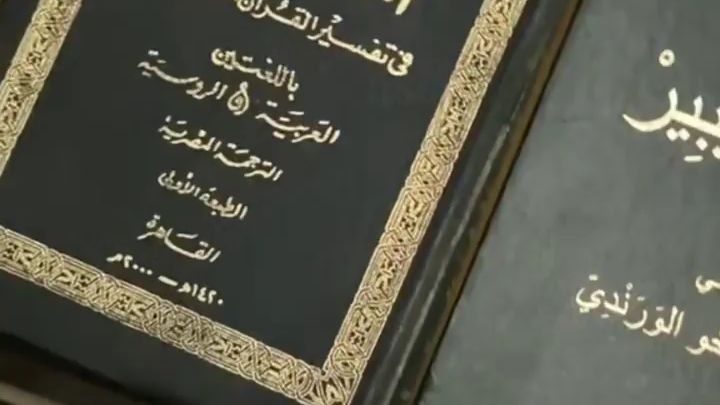 في تفسير القرآن
باللغتين
العربية و الروسية
الترجمة المصرية
الطبعة الأولى
القاهرة
١٤٢٠هـ - ٢٠٠٠م
الوَرَنْدِيّ